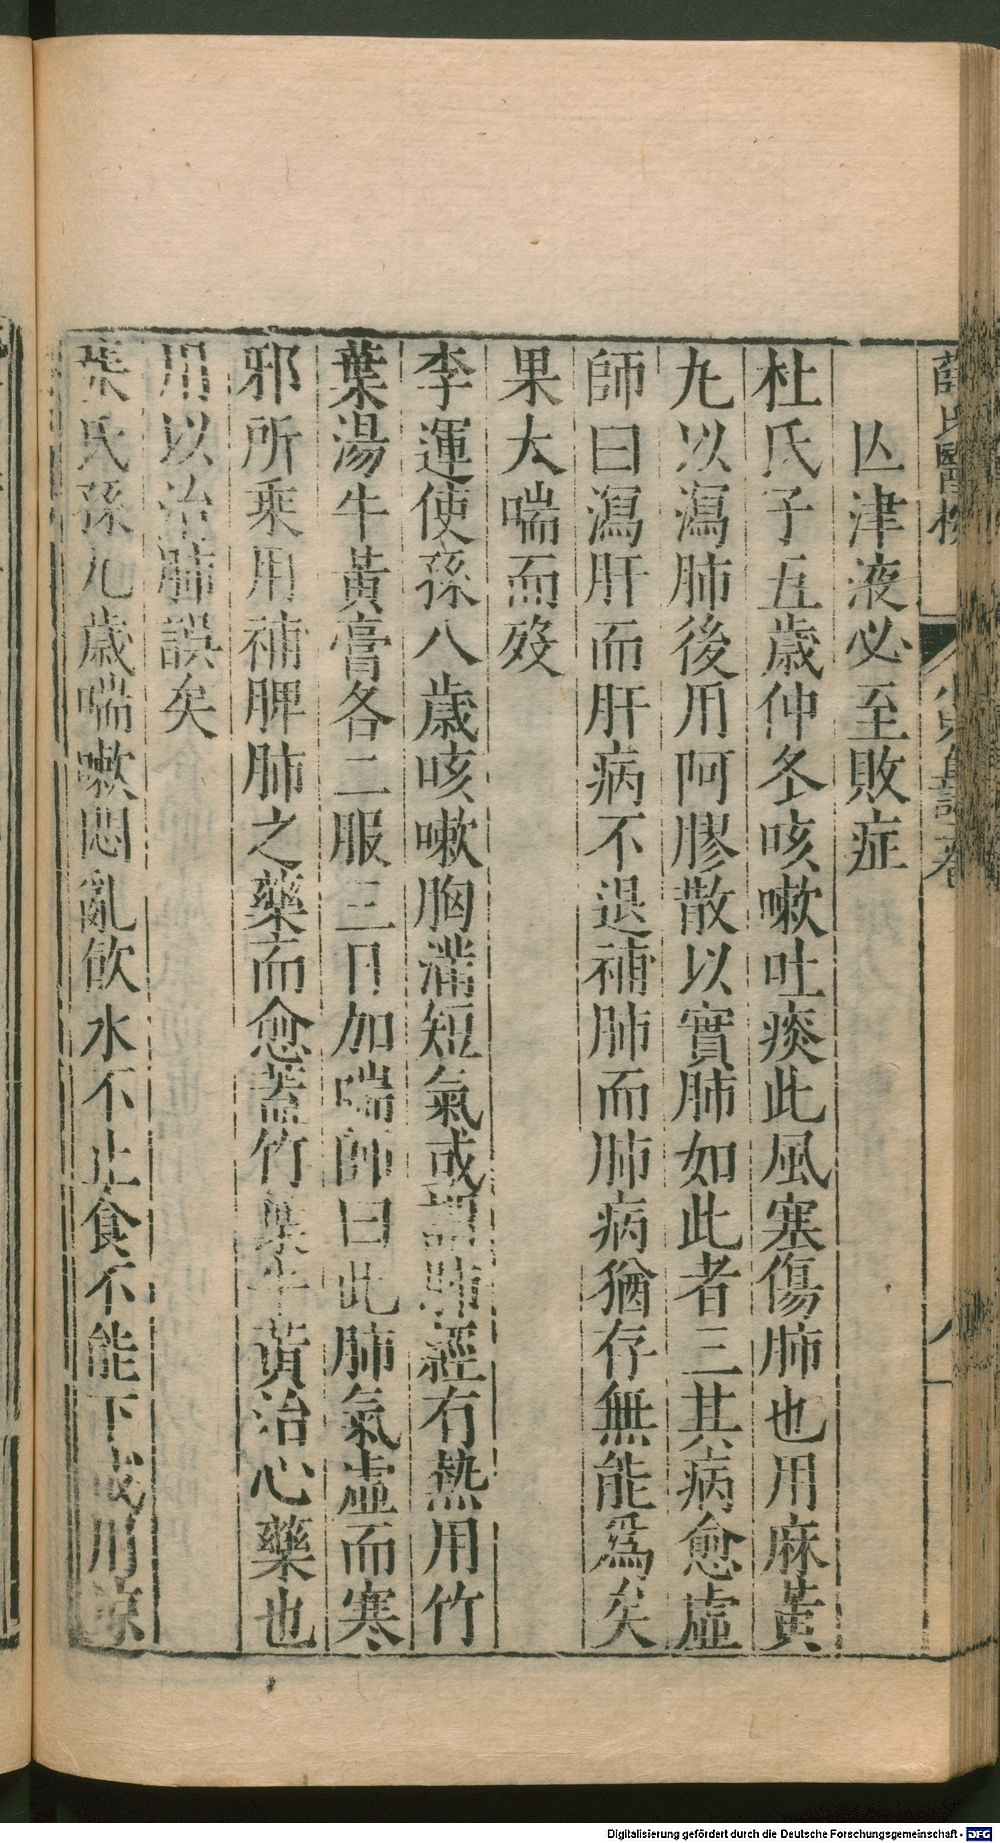 薛氏醫按
亾津液必至敗症
杜氏子五歲仲冬咳嗽吐痰此風寒傷肺也用麻黃
九以瀉肺後用阿膠散以實肺如此者三其病愈虛
師曰瀉肝而肝病不退補肺而肺病猶存無能爲矣
果大喘而歿
李運使孫八歲咳嗽胸滿短氣或謂肺經有熱用竹
葉湯牛黃膏各二服三日加喘師曰此肺氣虛而寒
邪所乗用補脾肺之藥而愈蓋竹葉牛黃治心藥也
用以治肺誤矣
葉氏孫九歲喘嗽悶亂飲水不止食不能下或用涼
Digitalisierung gefördert durch die Deutsche Forschungsgemeinschaft - DFG